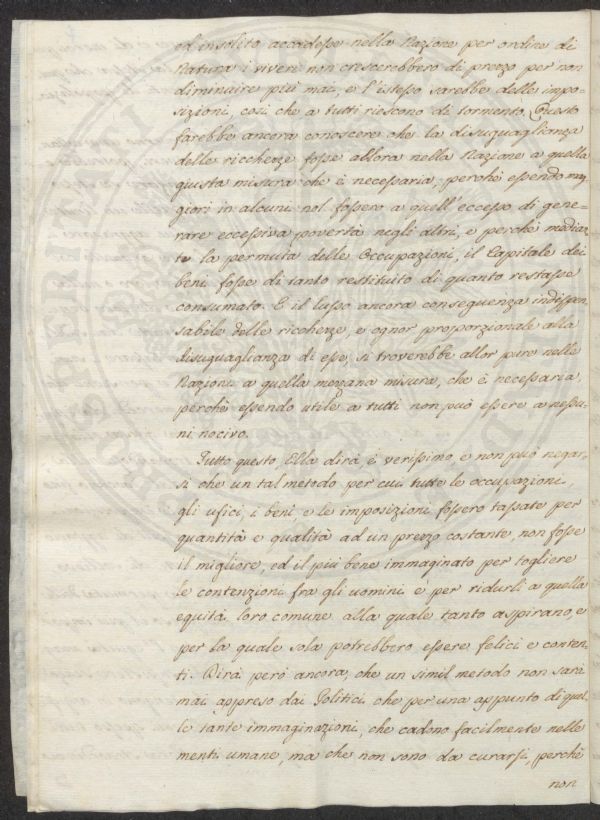 ed insolito accadesse nella Nazione per ordine di
Natura i viveri non crescerebbero di prezzo per non
diminuire più mai, e l'istesso sarebbe delle impo=
sizioni, così che a tutti riescono di tormento. Questo
farebbe ancora conoscere che la disuguaglianza
delle ricchezze fosse allora nella Nazione a quella
giusta misura che è necessaria, perchè essendo mag
giori in alcuni nol fossero a quell'eccesso di gene=
rare eccessiva povertà negli altri, e perchè mediaz
te la permuta delle Occupazioni, il Capitale dei
beni fosse di tanto restituito di quanto restasse
consumato. E il lusso ancora conseguenza indispen
sabile delle ricchezze, e ognor proporzionale alla
disuguaglianza di esse, si troverebbe allor pure nelle
Nazioni a quella mezzana misura, che è necessaria,
perchè essendo utile a tutti non può essere a nessu=
ni nocivo.
Tutto questo, Ella dirà, è verissimo, e non può negar=
si che un tal metodo per cui tutte le occupazioni,
gli ufici, i beni, e le imposizioni fossero tassate per
quantità e qualità ad un prezzo costante, non fosse
il migliore, ed il più bene immaginato per togliere
le contenzioni fra gli uomini e per ridurli a quella
equità loro comune alla quale tanto aspirano, e
per la quale sola potrebbero essere felici e conten=
ti. Dirà però ancora, che un simil metodo non sarà
mai appreso dai Politici che per una appunto di quel=
le tante immaginazioni, che cadono facilmente nelle
menti umane, ma che non sono da curarsi, perchè
non